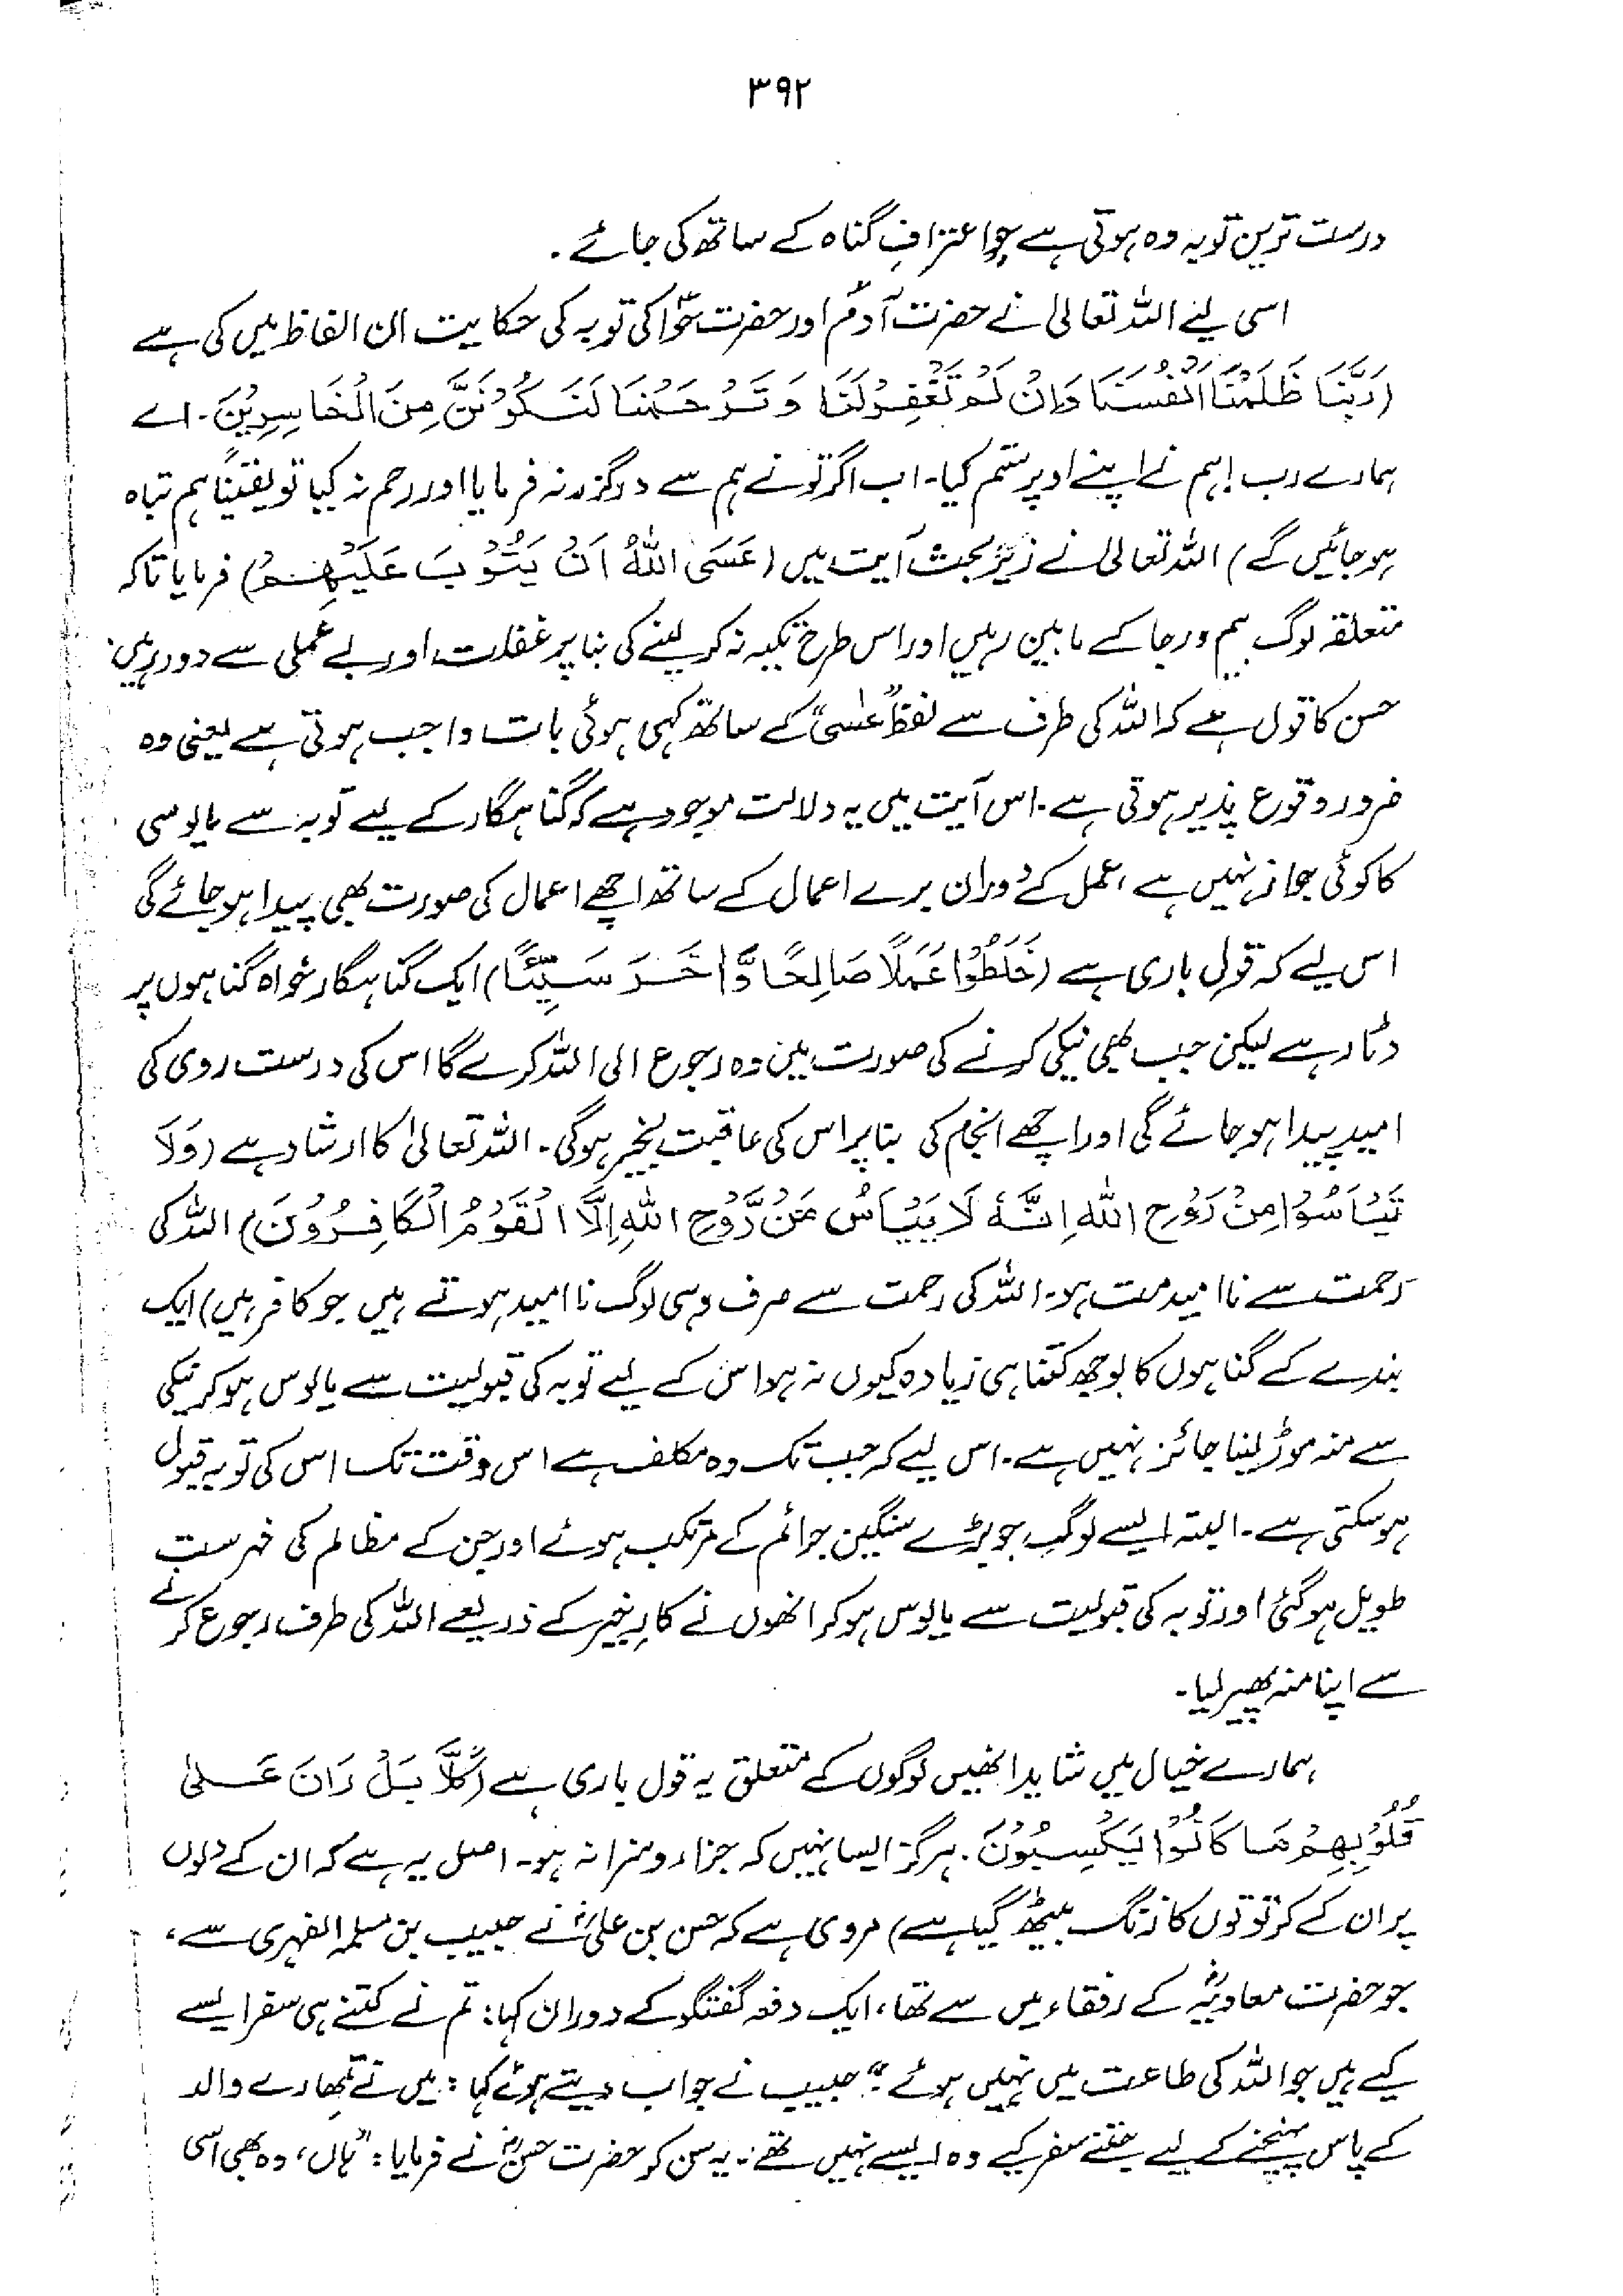 ۳۹۲
درست ترین توبہ وہ ہوتی ہے جو اعترافِ گناہ کے ساتھ کی جائے۔
اسی لیے اللہ تعالیٰ نے حضرت آدمؑ اور حضرت حواؑ کی توبہ کی حکایت ان الفاظ میں کی ہے
(رَبَّنَا ظَلَمْنَا اَنْفُسَنَا وَاِنْ لَمْ تَغْفِرْ لَنَا وَتَرْحَمْنَا لَنَكُوْنَنَّ مِنَ الْخَاسِرِيْنَ۔ اے
ہمارے رب! ہم نے اپنے اوپر ستم کیا۔ اب اگر تو نے ہم سے درگزر نہ فرمایا اور رحم نہ کیا تو یقیناً ہم تباہ
ہو جائیں گے) اللہ تعالیٰ نے زیرِ بحث آیت میں (عَسَى اللهُ اَنْ يَتُوْبَ عَلَيْهِمْ) فرمایا تاکہ
متعلقہ لوگ بیم و رجا کے مابین رہیں اور اس طرح تکیہ نہ کر لینے کی بنا پر غفلت اور بے عملی سے دور رہیں۔
حسن کا قول ہے کہ اللہ کی طرف سے لفظ "عسیٰ" کے ساتھ کہی ہوئی بات واجب ہوتی ہے یعنی وہ
ضرور وقوع پذیر ہوتی ہے۔ اس آیت میں یہ دلالت موجود ہے کہ گناہگار کے لیے توبہ سے مایوسی
کا کوئی جواز نہیں ہے، عمل کے دوران برے اعمال کے ساتھ اچھے اعمال کی صورت بھی پیدا ہو جائے گی
اس لیے کہ قولِ باری ہے (خَلَطُوْا عَمَلًا صَالِحًا وَّاٰخَرَ سَيِّئًا) ایک گناہگار خواہ گناہوں پر
ڈٹا رہے لیکن جب بھی نیکی کرنے کی صورت میں وہ رجوع الی اللہ کرے گا اس کی درست روی کی
امید پیدا ہو جائے گی اور اچھے انجام کی بنا پر اس کی عاقبت بخیر ہوگی۔ اللہ تعالیٰ کا ارشاد ہے (وَلَا
تَيْاَسُوْا مِنْ رَوْحِ اللهِ اِنَّهٗ لَا يَيْاَسُ مَنْ رَّوْحِ اللهِ اِلَّا الْقَوْمُ الْكَافِرُوْنَ) اللہ کی
رحمت سے ناامید مت ہو۔ اللہ کی رحمت سے صرف وہی لوگ ناامید ہوتے ہیں جو کافر ہیں) ایک
بندے کے گناہوں کا بوجھ کتنا ہی زیادہ کیوں نہ ہو اس کے لیے توبہ کی قبولیت سے مایوس ہو کر نیکی
سے منہ موڑ لینا جائز نہیں ہے۔ اس لیے کہ جب تک وہ مکلف ہے اس وقت تک اس کی توبہ قبول
ہو سکتی ہے۔ البتہ ایسے لوگ جو بڑے سنگین جرائم کے مرتکب ہوئے اور جن کے مظالم کی فہرست
طویل ہو گئی اور توبہ کی قبولیت سے مایوس ہو کر انھوں نے کارِ خیر کے ذریعے اللہ کی طرف رجوع کرنے
سے اپنا منہ پھیر لیا۔
ہمارے خیال میں شاید انھیں لوگوں کے متعلق یہ قول باری ہے (كَلَّا بَلْ رَانَ عَلٰى
قُلُوْبِهِمْ مَا كَانُوْا يَكْسِبُوْنَ۔ ہرگز ایسا نہیں کہ جزاء و سزا نہ ہو۔ اصل یہ ہے کہ ان کے دلوں
پر ان کے کرتوتوں کا زنگ بیٹھ گیا ہے) مروی ہے کہ حسن بن علیؓ نے حبیب بن مسلمہ الفہری سے،
جو حضرت معاویہؓ کے رفقاء میں سے تھا، ایک دفعہ گفتگو کے دوران کہا: تم نے کتنے ہی سفر ایسے
کیے ہیں جو اللہ کی طاعت میں نہیں ہوئے"؟ حبیب نے جواب دیتے ہوئے کہا: میں نے تمھارے والد
کے پاس پہنچنے کے لیے جتنے سفر کیے وہ ایسے نہیں تھے۔ یہ سن کر حضرت حسنؓ نے فرمایا: "ہاں، وہ بھی اسی